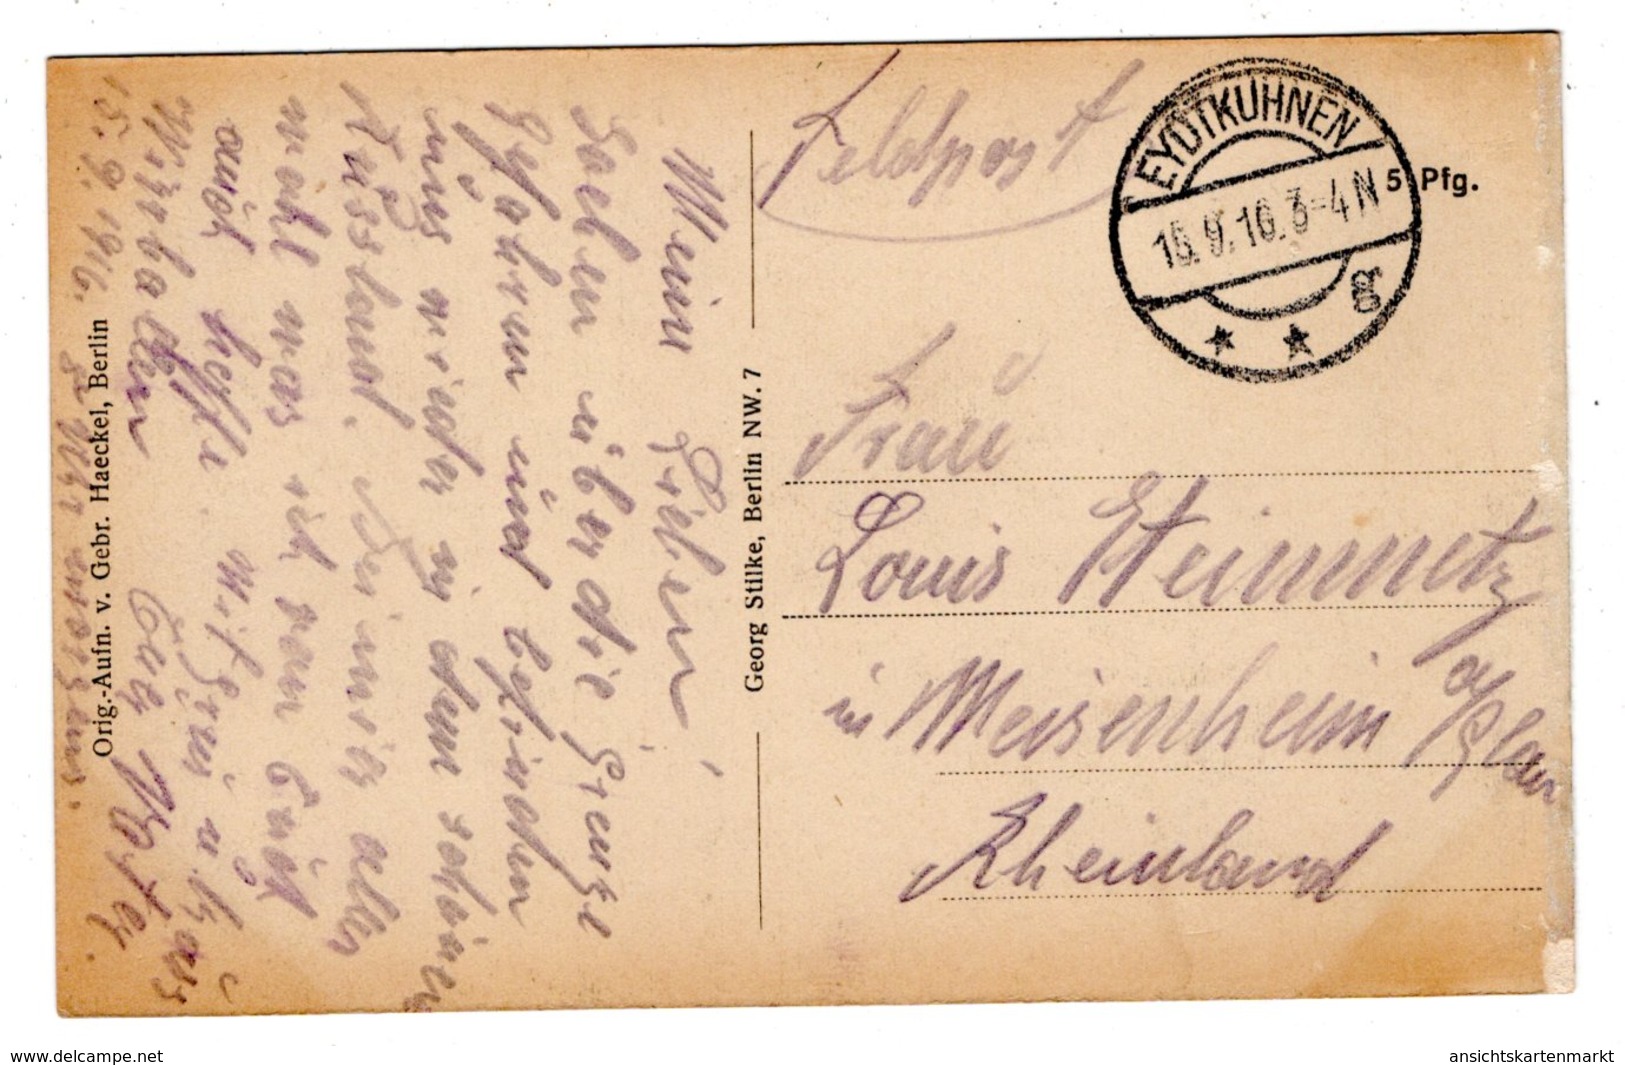 Feldpost
EYDTKUHNEN
15.9.16. 3-4 N
g
5 Pfg.
Frau
Louis Steinmetz
in Meisenheim a/Glan
Rheinland
Georg Stilke, Berlin NW. 7
Orig.-Aufn. v. Gebr. Haeckel, Berlin
Meine Lieben,
Soeben über die Grenze
gefahren und befinden
uns wieder in dem schönen
Russland.
wohl was ich von Euch
auch hoffe. Mit Gruß u. Kuss
Wirballen Euer Vater.
15.9.1916. 5 Uhr morgens.